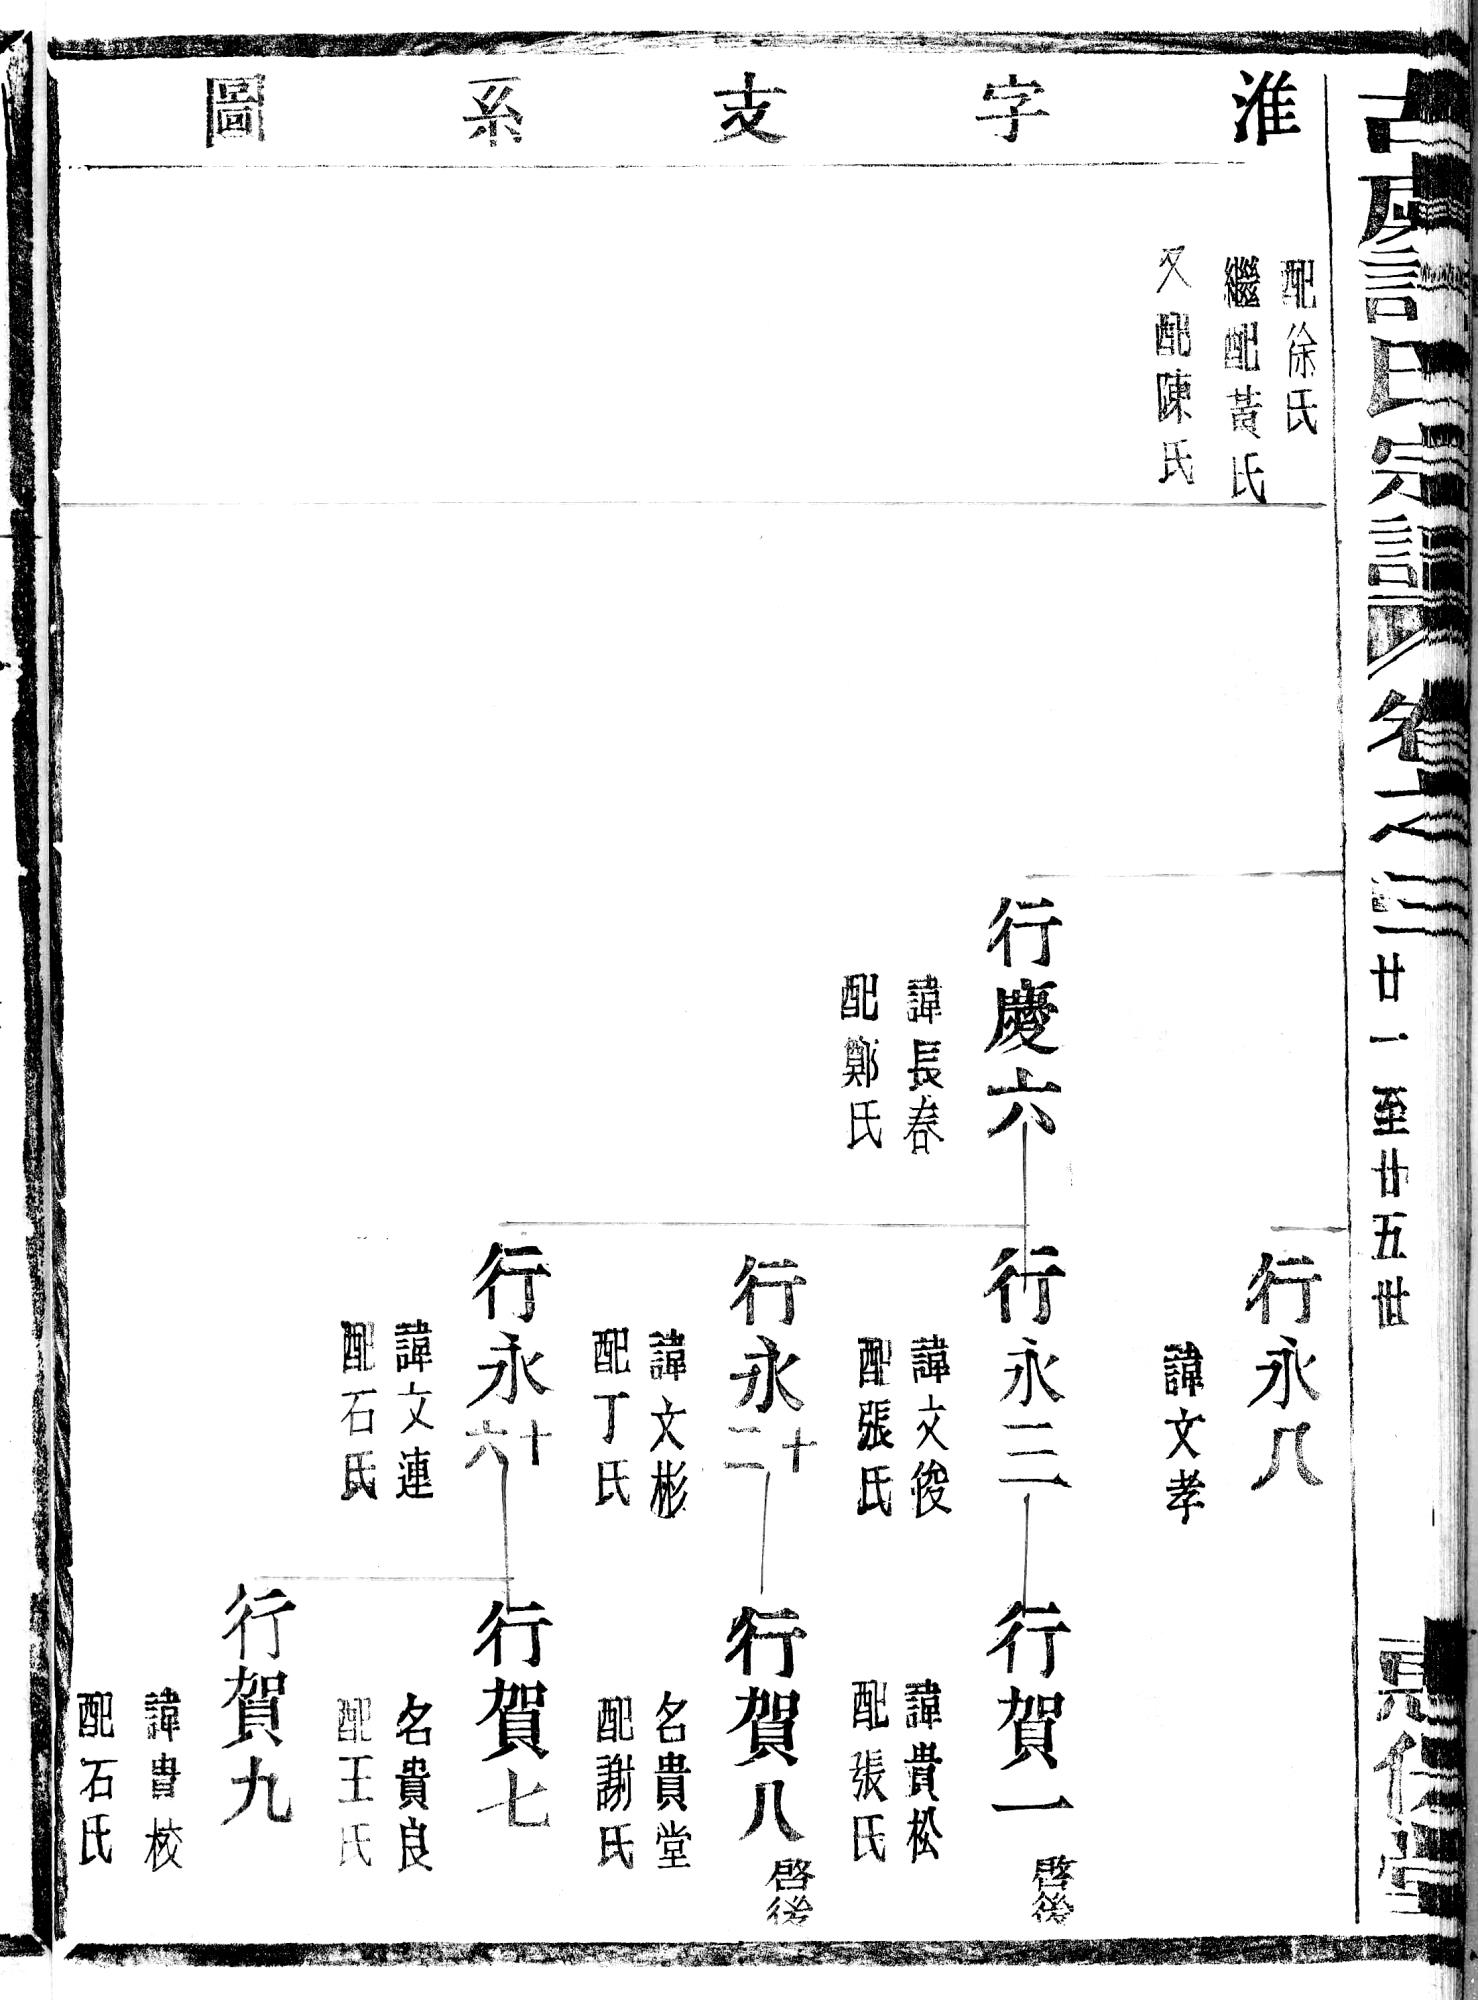 淮字支系圖
配徐氏
繼配黃氏
又配陳氏
行慶六
諱長春
配鄭氏
行永八
諱文孝
行永三
諱文俊
配張氏
行永十二
諱文彬
配丁氏
行永十六
諱文連
配石氏
行賀一
啓後
諱貴松
配張氏
行賀八
啓後
名貴堂
配謝氏
行賀七
名貴良
配王氏
行賀九
諱貴校
配石氏
氏宗譜 卷之三 廿一至廿五世